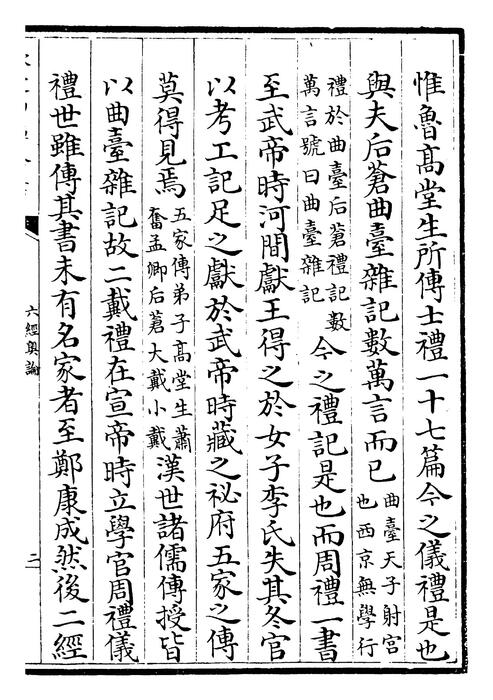 惟魯髙堂生所傳士禮一十七篇今之儀禮是也
與夫后蒼曲臺雜記數萬言而已曲臺天子射宫也西京無學行
禮於曲臺后蒼禮記數萬言號曰曲臺雜記今之禮記是也而周禮一書
至武帝時河間獻王得之於女子李氏失其冬官
以考工記足之獻於武帝時藏之祕府五家之傳
莫得見焉五家傳弟子髙堂生蕭奮孟卿后蒼大戴小戴漢世諸儒傳授皆
以曲臺雜記故二戴禮在宣帝時立學官周禮儀
禮世雖傳其書未有名家者至鄭康成然後二經
六經奥論
二